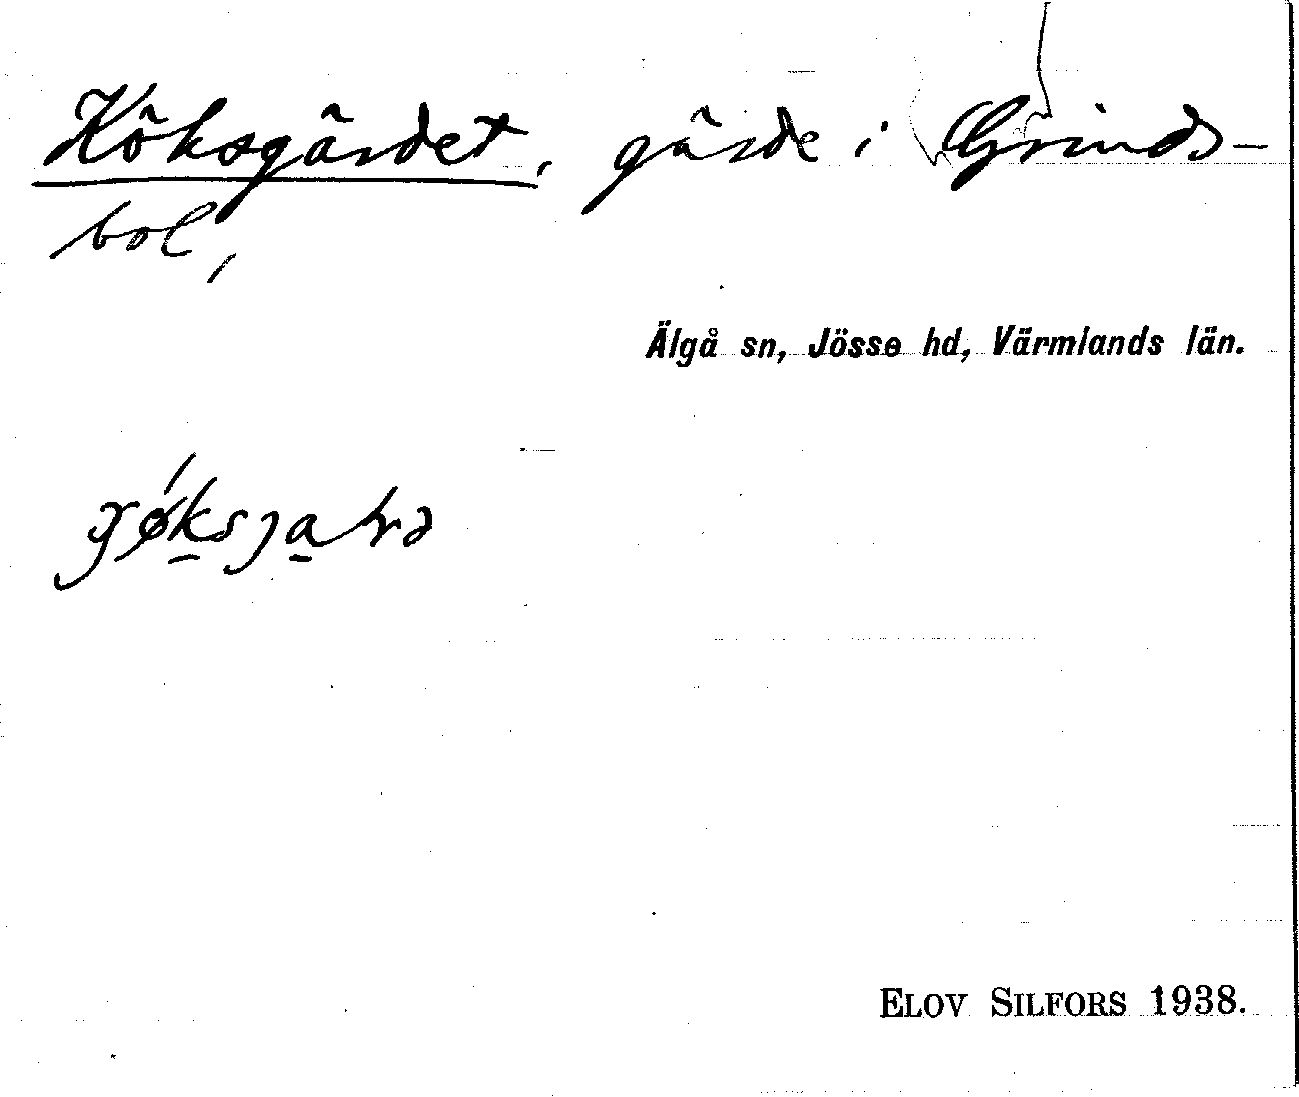 Köksgärdet, gärde i Grinds-
bol,
Älgå sn, Jösse hd, Värmlands län.
Elov Silfors 1938.